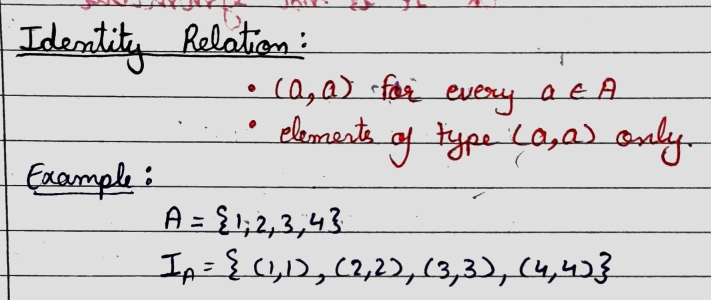 Identity Relation:
• (a,a) for every a ∈ A
• elements of type (a,a) only.
Example:
A = {1,2,3,4}
I_A = { (1,1), (2,2), (3,3), (4,4)}